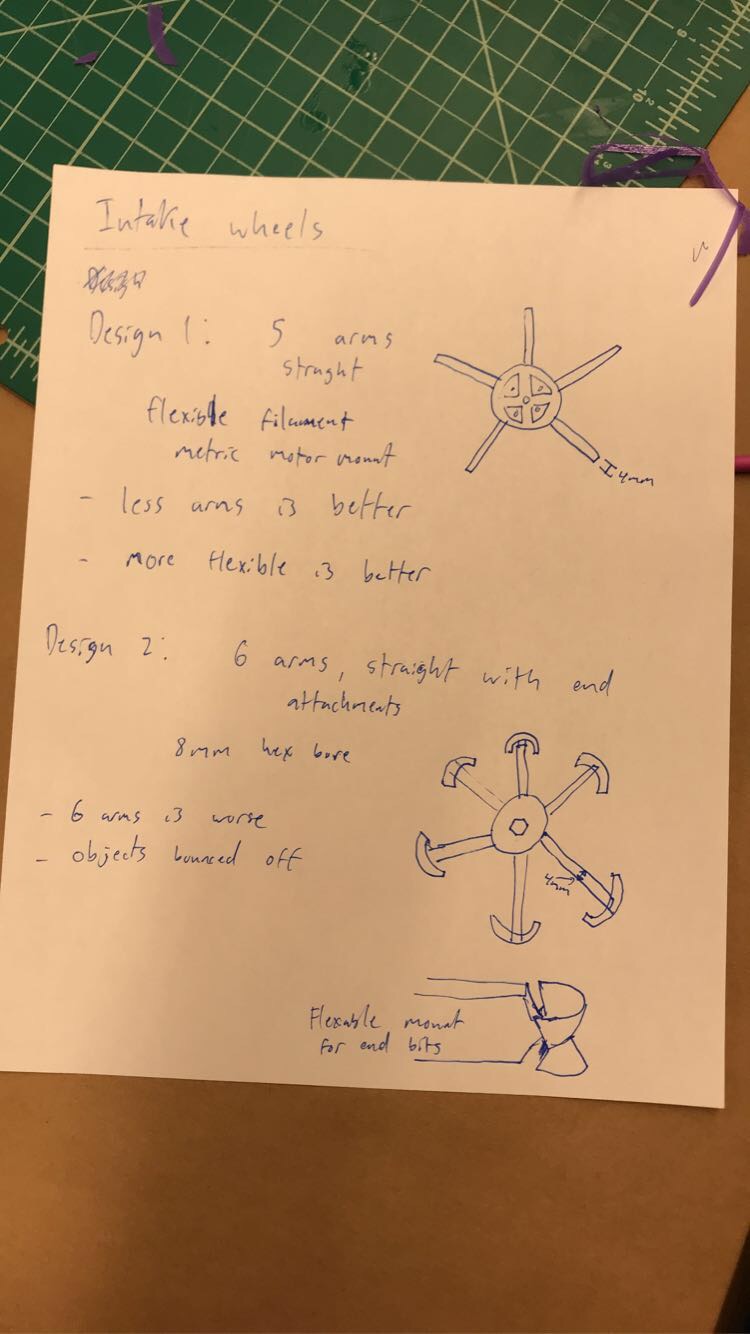 Intake wheels
Design 1: 5 arms
straght
flexible filament
metric motor mount
4mm
- less arms is better
- more flexible is better
Design 2: 6 arms, straight with end
attachments
8mm hex bore
- 6 arms is worse
- objects bounced off
4mm
Flexable mount
for end bits